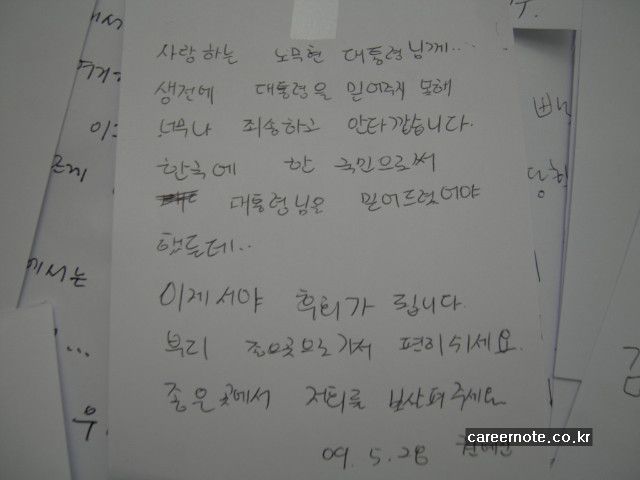 사랑하는 노무현 대통령님께...
생전에 대통령을 믿어주지 못해
너무나 죄송하고 안타깝습니다.
한국에 한 국민으로써
대통령님을 믿어드렸어야
했는데..
이제서야 후회가 됩니다.
부디 좋은곳으로 가서 편히쉬세요.
좋은 곳에서 저희를 보살펴주세요.
09. 5. 28
에서는
careernote.co.kr